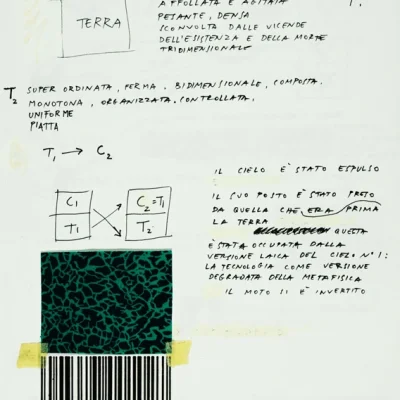 AFFOLLATA E AGITATA
TERRA
PESANTE, DENSA
SCONVOLTA DALLE VICENDE
DELL'ESISTENZA E DELLA MORTE
TRIDIMENSIONALE
T2 SUPER ORDINATA, FERMA. BIDIMENSIONALE, COMPOSTA.
MONOTONA, ORGANIZZATA. CONTROLLATA.
UNIFORME
PIATTA
T1 → C2
C1
C2=T1
T1
T2
IL CIELO E' STATO ESPULSO :
IL SUO POSTO E' STATO PRESO
DA QUELLA CHE ERA PRIMA
LA TERRA
QUESTA
È STATA OCCUPATA DALLA
VERSIONE LAICA DEL CIELO N°1:
LA TECNOLOGIA COME VERSIONE
DEGRADATA DELLA METAFISICA
IL MOTO SI E' INVERTITO